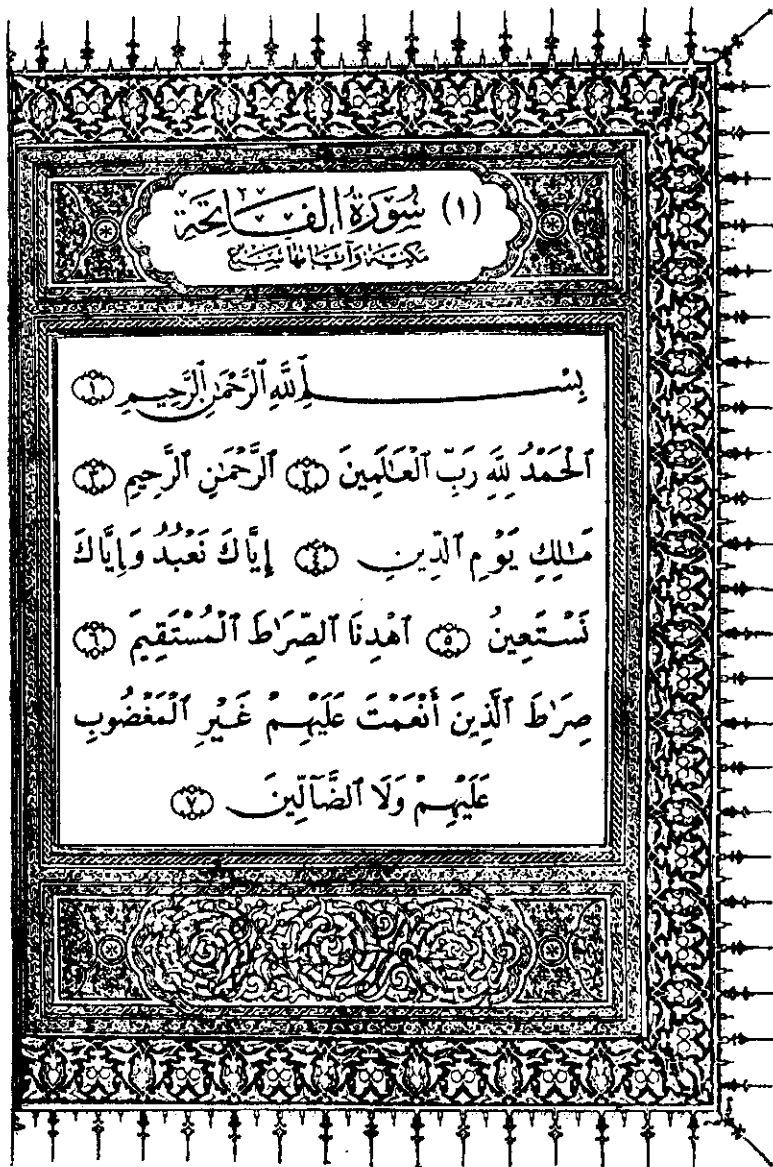 (١) سُورَةُ الفَاتِحَةِ
مَكِيَّة وَآيَاتُهَا سَبْع
بِسْمِ ٱللَّهِ ٱلرَّحْمَٰنِ ٱلرَّحِيمِ ١
ٱلْحَمْدُ لِلَّهِ رَبِّ ٱلْعَٰلَمِينَ ٢ ٱلرَّحْمَٰنِ ٱلرَّحِيمِ ٣
مَٰلِكِ يَوْمِ ٱلدِّينِ ٤ إِيَّاكَ نَعْبُدُ وَإِيَّاكَ
نَسْتَعِينُ ٥ ٱهْدِنَا ٱلصِّرَٰطَ ٱلْمُسْتَقِيمَ ٦
صِرَٰطَ ٱلَّذِينَ أَنْعَمْتَ عَلَيْهِمْ غَيْرِ ٱلْمَغْضُوبِ
عَلَيْهِمْ وَلَا ٱلضَّآلِّينَ ٧